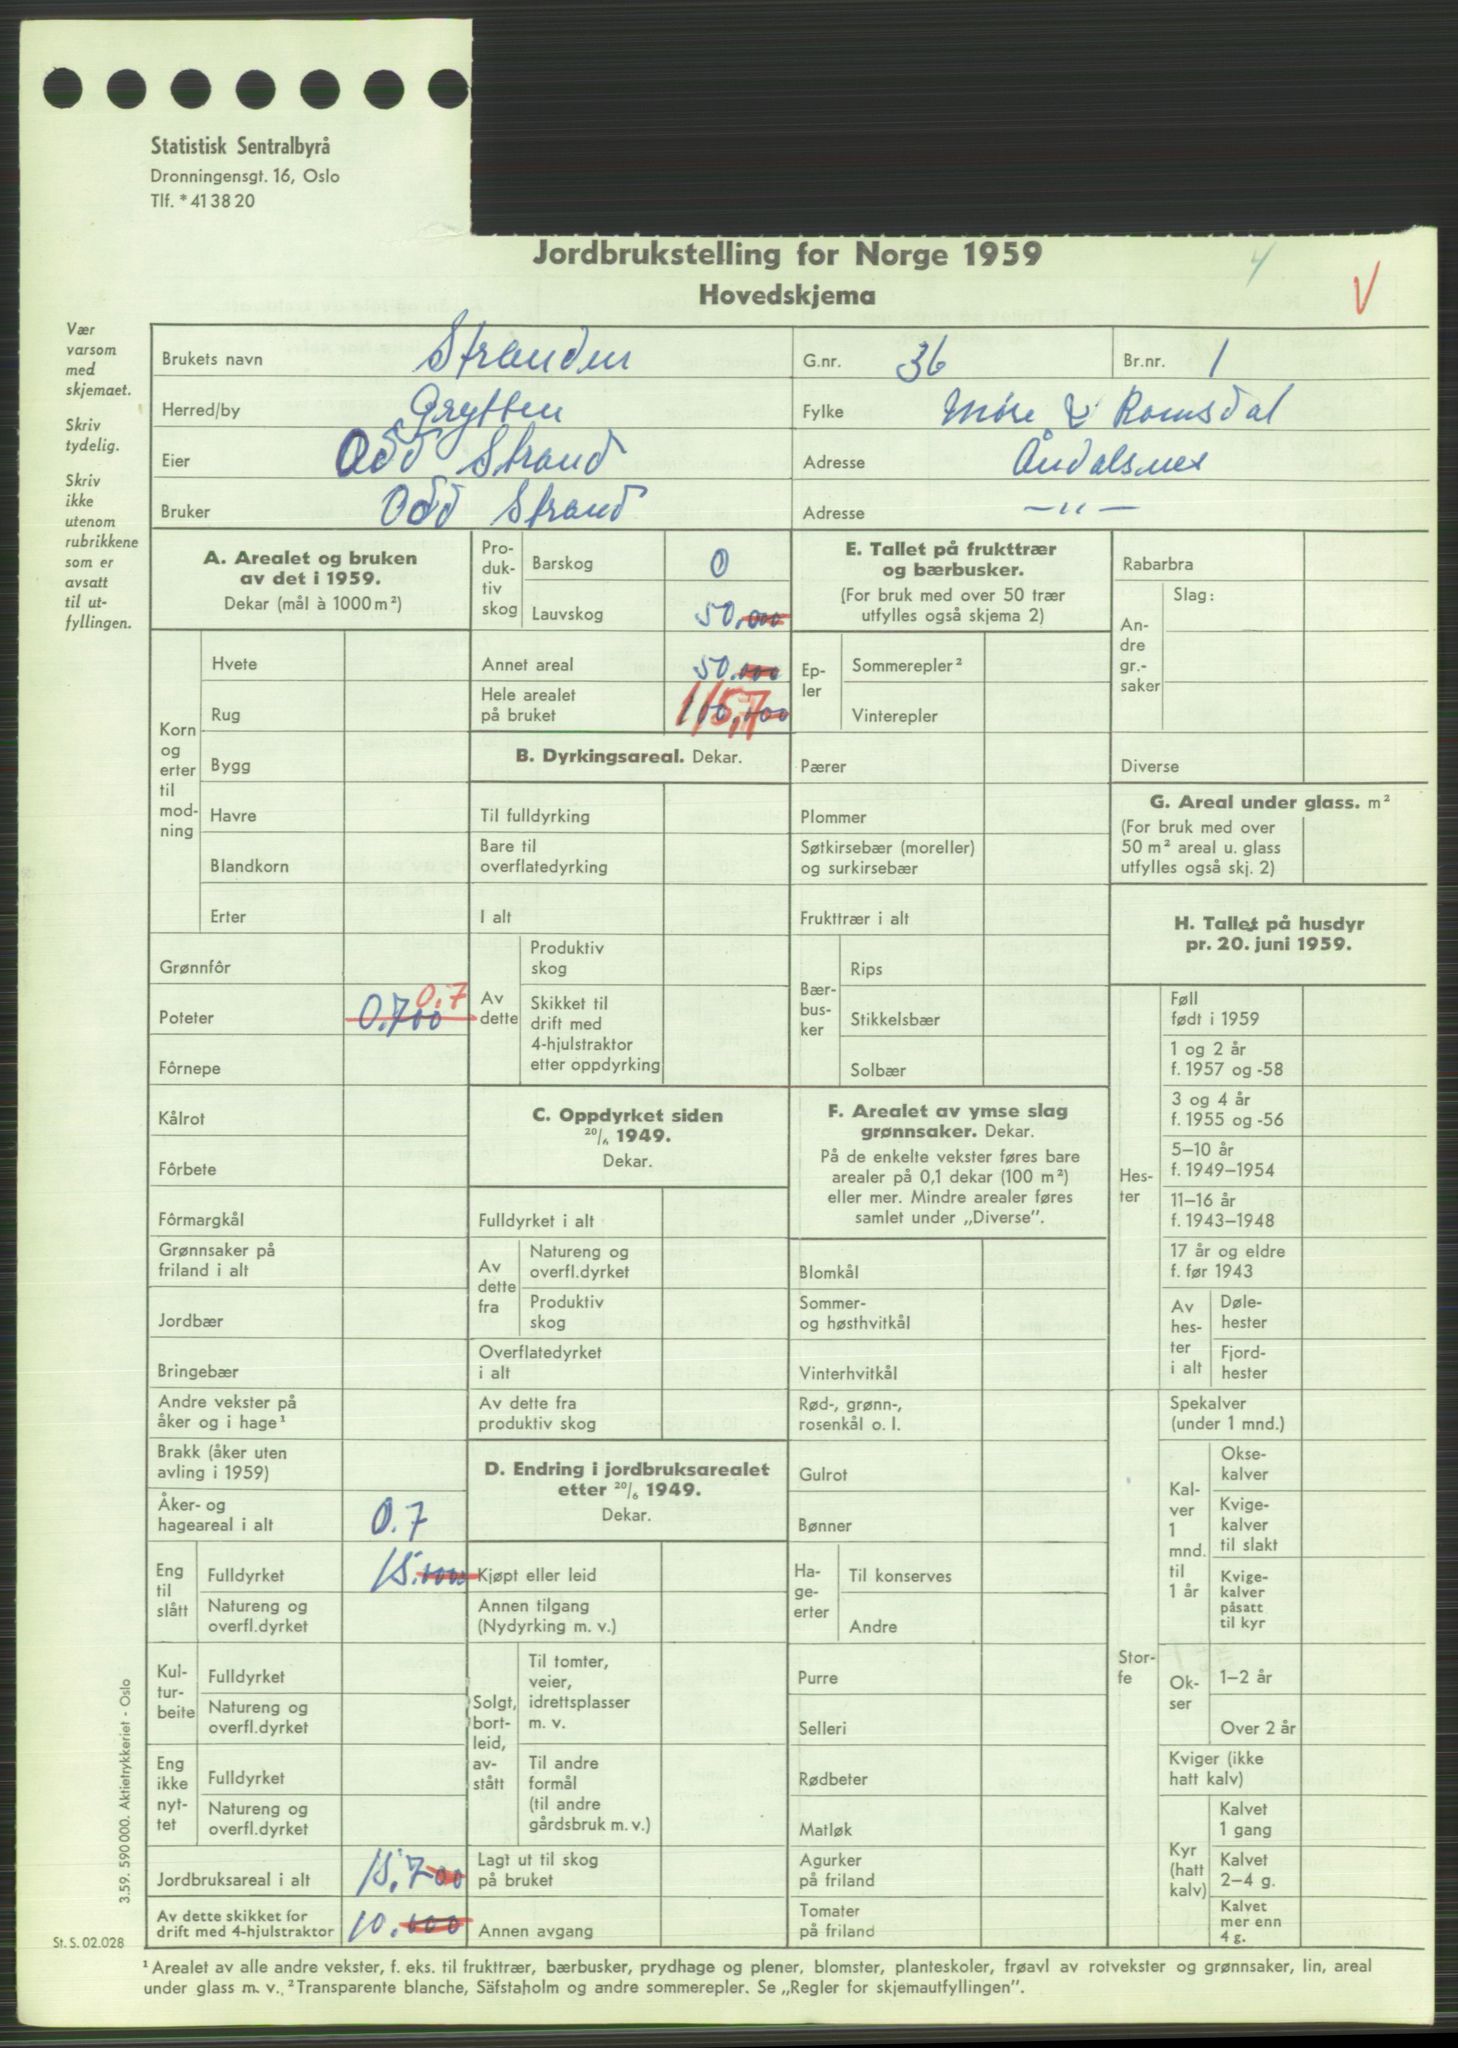 Statistisk Sentralbyrå
Dronningensgt. 16, Oslo
Tlf. * 41 38 20
Jordbrukstelling for Norge 1959
Hovedskjema
4
V
Vær
varsom
med
skjemaet.
Skriv
tydelig.
Skriv
ikke
utenom
rubrikkene
som er
avsatt
til ut-
fyllingen.
Brukets navn Stranden G.nr. 36 Br.nr. 1
Herred/by Grytten Fylke Møre & Romsdal
Eier Odd Strand Adresse Åndalsnes
Bruker Odd Strand Adresse — " —
A. Arealet og bruken
av det i 1959.
Dekar (mål à 1000 m²)
Korn
og
erter
til
mod-
ning
Hvete
Rug
Bygg
Havre
Blandkorn
Erter
Grønnfôr
Poteter 0.700 0.7
Fôrnepe
Kålrot
Fôrbete
Fôrmargkål
Grønnsaker på
friland i alt
Jordbær
Bringebær
Andre vekster på
åker og i hage¹
Brakk (åker uten
avling i 1959)
Åker- og
hageareal i alt 0.7
Eng
til
slått
Fulldyrket 15.000
Natureng og
overfl.dyrket
Kul-
tur-
beite
Fulldyrket
Natureng og
overfl.dyrket
Eng
ikke
nyt-
tet
Fulldyrket
Natureng og
overfl.dyrket
Jordbruksareal i alt 15.700
Av dette skikket for
drift med 4-hjulstraktor 10.000
Pro-
duk-
tiv
skog
Barskog 0
Lauvskog 50.000
Annet areal 50.000
Hele arealet
på bruket 100.000 115,7
B. Dyrkingsareal. Dekar.
Til fulldyrking
Bare til
overflatedyrking
I alt
Av
dette
Produktiv
skog
Skikket til
drift med
4-hjulstraktor
etter oppdyrking
C. Oppdyrket siden
20/6 1949.
Dekar.
Fulldyrket i alt
Av
dette
fra
Natureng og
overfl.dyrket
Produktiv
skog
Overflatedyrket
i alt
Av dette fra
produktiv skog
D. Endring i jordbruksarealet
etter 20/6 1949.
Dekar.
Kjøpt eller leid
Annen tilgang
(Nydyrking m. v.)
Solgt,
bort-
leid,
av-
stått
Til tomter,
veier,
idrettsplasser
m. v.
Til andre
formål
(til andre
gårdsbruk m. v.)
Lagt ut til skog
på bruket
Annen avgang
E. Tallet på frukttrær
og bærbusker.
(For bruk med over 50 trær
utfylles også skjema 2)
Ep-
ler
Sommerepler ²
Vinterepler
Pærer
Plommer
Søtkirsebær (moreller)
og surkirsebær
Frukttrær i alt
Bær-
bus-
ker
Rips
Stikkelsbær
Solbær
F. Arealet av ymse slag
grønnsaker. Dekar.
På de enkelte vekster føres bare
arealer på 0,1 dekar (100 m²)
eller mer. Mindre arealer føres
samlet under „Diverse”.
Blomkål
Sommer-
og høsthvitkål
Vinterhvitkål
Rød-, grønn-,
rosenkål o. l.
Gulrot
Bønner
Ha-
ge-
erter
Til konserves
Andre
Purre
Selleri
Rødbeter
Matløk
Agurker
på friland
Tomater
på friland
Rabarbra
An-
dre
gr.-
saker
Slag:
Diverse
G. Areal under glass. m²
(For bruk med over
50 m² areal u. glass
utfylles også skj. 2)
H. Tallet på husdyr
pr. 20. juni 1959.
Hes-
ter
Føll
født i 1959
1 og 2 år
f. 1957 og -58
3 og 4 år
f. 1955 og -56
5–10 år
f. 1949–1954
11–16 år
f. 1943–1948
17 år og eldre
f. før 1943
Av
hes-
ter
i alt
Døle-
hester
Fjord-
hester
Stor-
fe
Spekalver
(under 1 mnd.)
Kal-
ver
1
mnd.
til
1 år
Okse-
kalver
Kvige-
kalver
til slakt
Kvige-
kalver
påsatt
til kyr
Ok-
ser
1–2 år
Over 2 år
Kviger (ikke
hatt kalv)
Kyr
(hatt
kalv)
Kalvet
1 gang
Kalvet
2–4 g.
Kalvet
mer enn
4 g.
3.59. 590 000. Aktietrykkeriet - Oslo
St. S. 02.028
¹ Arealet av alle andre vekster, f. eks. til frukttrær, bærbusker, prydhage og plener, blomster, planteskoler, frøavl av rotvekster og grønnsaker, lin, areal
under glass m. v. ² Transparente blanche, Säfstaholm og andre sommerepler. Se „Regler for skjemautfyllingen”.